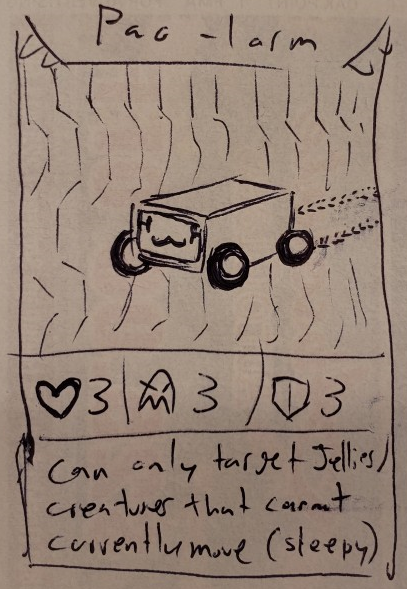 Pac-larm
3 3 3
Can only target Jellies/
creatures that cannot
currently move (sleepy)